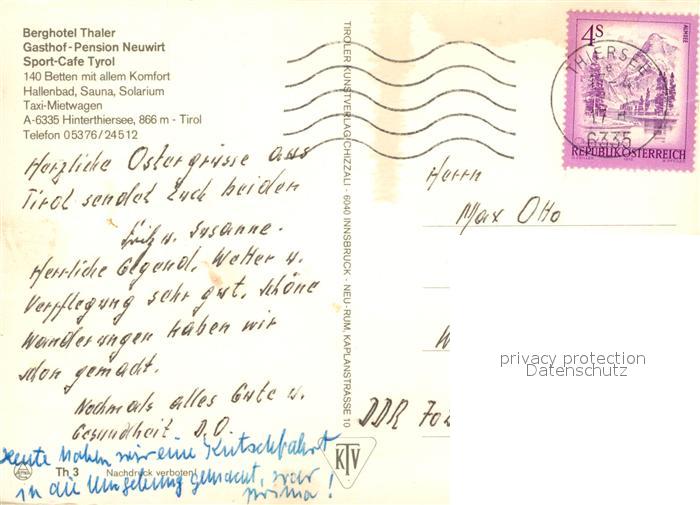 Berghotel Thaler
Gasthof-Pension Neuwirt
Sport-Cafe Tyrol
140 Betten mit allem Komfort
Hallenbad, Sauna, Solarium
Taxi-Mietwagen
A-6335 Hinterthiersee, 866 m - Tirol
Telefon 05376/24512
Herzliche Ostergrüsse aus
Tirol sendet Euch beiden
Fritz u. Susanne.
Herrliche Gegend, Wetter u.
Verpflegung sehr gut. Schöne
Wanderungen haben wir
schon gemacht.
Nochmals alles Gute u.
Gesundheit D.O.
Heute haben wir eine Kutschfahrt
in die Umgebung gemacht, war
prima!
Th 3 Nachdruck verboten!
TIROLER KUNSTVERLAG CHIZZALI - 6040 INNSBRUCK - NEU-RUM, KAPLANSTRASSE 10
KTV
4S
ALMSEE
REPUBLIK ÖSTERREICH
THIERSEE
6335
Herrn
Max Otto
W
DDR 702
privacy protection
Datenschutz